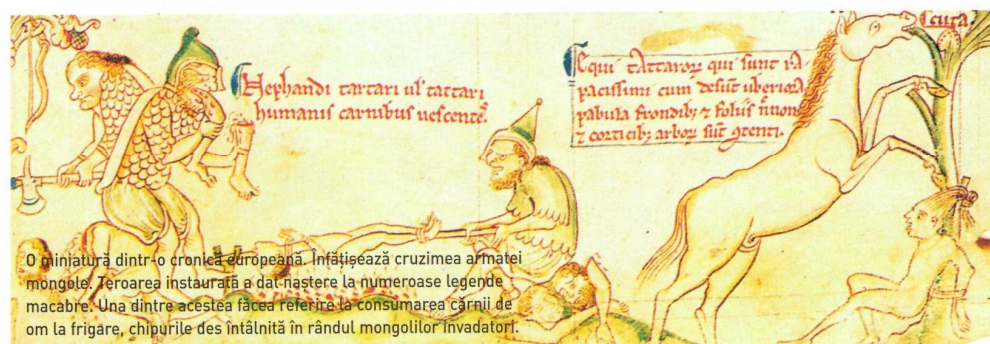 Nephandi tartari ul' tattari
humanis carnibus uescentes
Equi tattaroꝝ qui sunt ra
pacissimi cum desūt uberiora
pabula frondibꝫ ⁊ foliis
⁊ corticibꝫ arboꝝ sūt ꝯtenti.
O miniatură dintr-o cronică europeană. Înfățișează cruzimea armatei
mongole. Teroarea instaurată a dat naștere la numeroase legende
macabre. Una dintre acestea făcea referire la consumarea cărnii de
om la frigare, chipurile des întâlnită în rândul mongolilor invadatori.